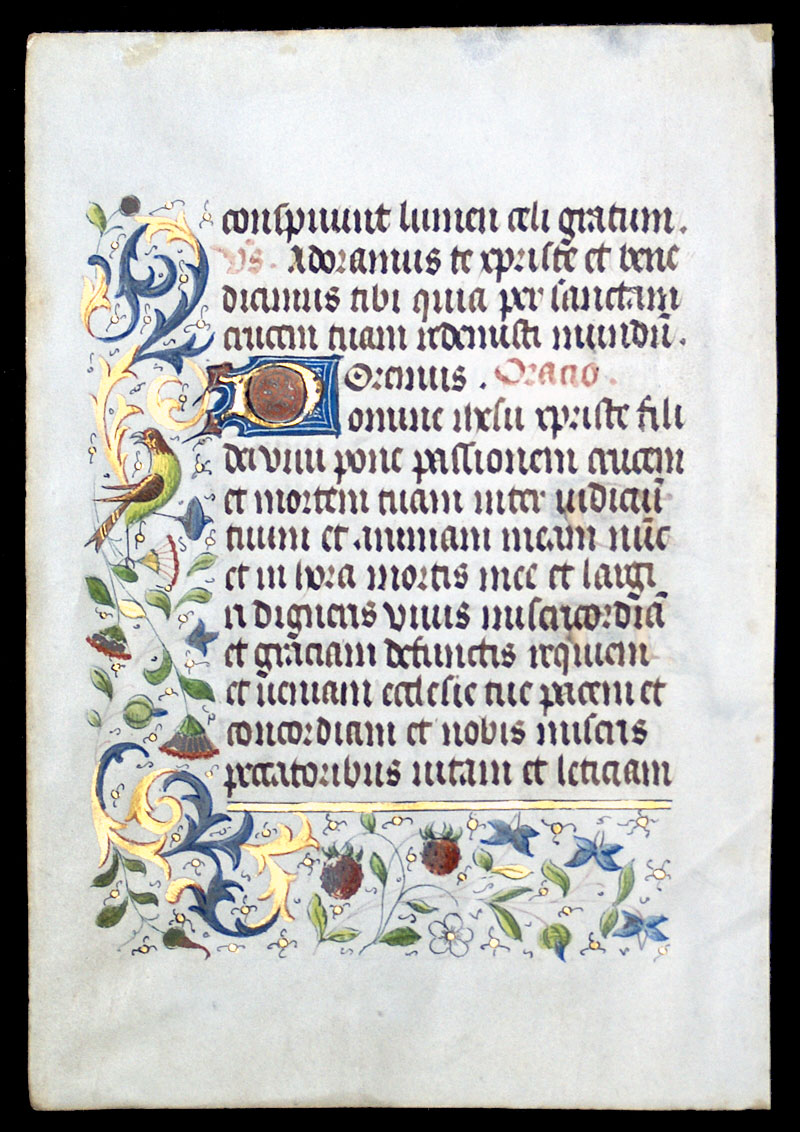 conspiuunt lumen celi gratum.
Vs. Adoramus te xpriste et bene
dicimus tibi quia per sanctam
crucem tuam redemisti mundū.
Oremus. Oracio.
Domine ihesu xpriste fili
dei viui pone passionem crucem
et mortem tuam inter iudiciū
tuum et animam meam nūc
et in hora mortis mee et largi
ri digneris viuis misericordiā
et graciam defunctis requiem
et ueniam ecclesie tue pacem et
concordiam et nobis miseris
peccatoribus uitam et leticiam